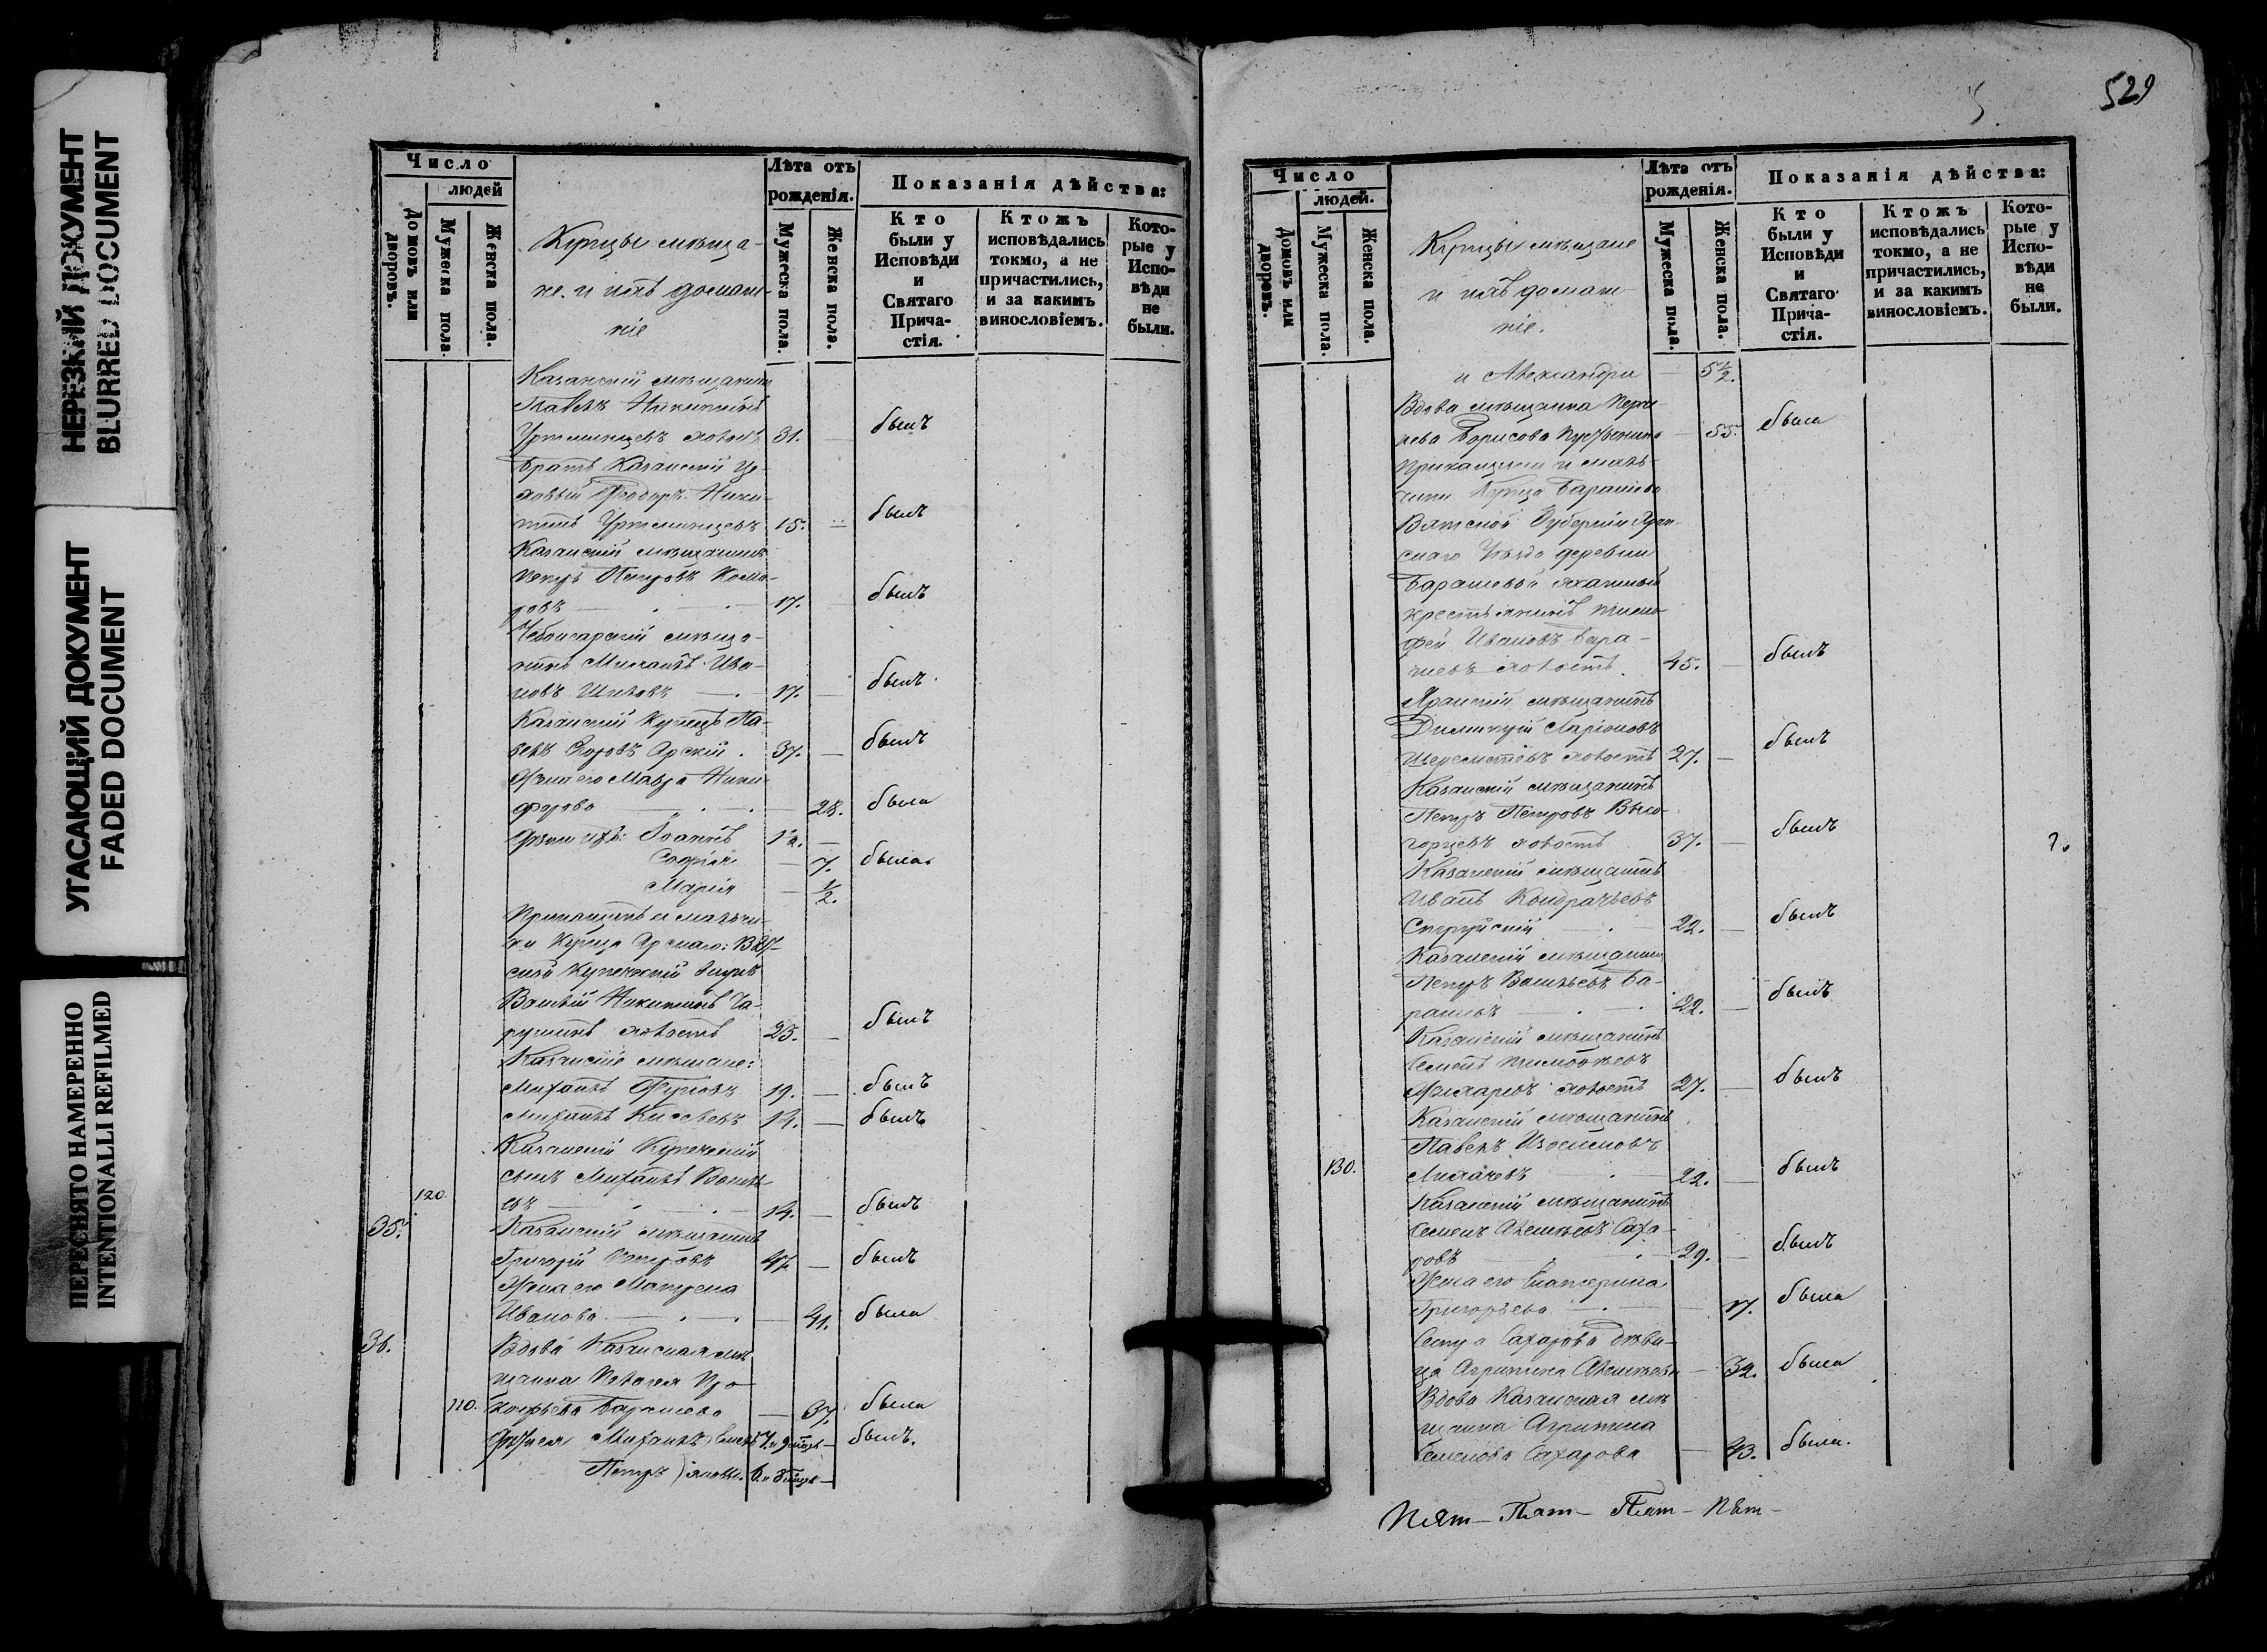 НЕРЕЗКИЙ ДОКУМЕНТ
BLURRED DOCUMENT
УГАСАЮЩИЙ ДОКУМЕНТ
FADED DOCUMENT
ПЕРЕСНЯТО НАМЕРЕННО
INTENTIONALLI REFILMED
Число
людей
Домовъ или дворовъ.
Мужеска пола.
Женска пола.
Купцы мѣща-
не и ихъ домаш-
ніе
Лѣта отъ
рожденія.
Мужеска пола.
Женска пола.
Показанія дѣйства:
Кто
были у
Исповѣди
и
Святаго
Прича-
стія.
Ктожъ
исповѣдались
токмо, а не
причастились,
и за какимъ
винословіемъ.
Кото-
рые у
Испо-
вѣди
не
были.
Казанскій мѣщанинъ
Павелъ Никитинъ
31. — былъ
Братъ Казанскій Це-
ховый Ѳеодоръ Ники-
тинъ 15. — былъ
Казанскій мѣщанинъ
Петръ Петровъ Кома-
ровъ — 17. — былъ
Чебоксарскій мѣща-
нинъ Михаилъ Ива-
новъ — 17. — былъ
Казанскій Купецъ Па-
велъ Арскій 37. — былъ
Жена его Мавра Ники-
форова — 28. была
Дѣти ихъ: Іоаннъ 12. —
Софія — 7. была
Марія — ½.
и мальчи-
ки Купца Арскаго:
Купеческій
Василій Никитинъ Ча-
рушинъ холостъ 25. — былъ
Казанскіе мѣщане:
Михаилъ 19. — былъ
Михаилъ 14. — былъ
Казанскій Купеческій
сынъ Михаилъ Василь-
120. евъ — 14. — былъ
35. Казанскій мѣщанинъ
Григорій Петровъ 47. — былъ
Жена его Матрена
Иванова — 41. была
36. Вдова Казанская мѣ-
щанка Пелагея Про-
110. кофьева Барашева — 37. была
Михаилъ 7. и 9 — былъ.
Петръ 6. и 8 —
529
Число
людей.
Домовъ или дворовъ.
Мужеска пола.
Женска пола.
Купцы мѣщане
и ихъ домаш-
ніе.
Лѣта отъ
рожденія.
Мужеска пола.
Женска пола.
Показанія дѣйства:
Кто
были у
Исповѣди
и
Святаго
Прича-
стія.
Ктожъ
исповѣдались
токмо, а не
причастились,
и за какимъ
винословіемъ.
Кото-
рые у
Испо-
вѣди
не
были.
и Александра — 5½.
Вдова мѣщанка
Борисова — 55. была
Прикащики и маль-
чики Купца Барашева
Вятской Губерніи Яран-
скаго Уѣзда деревни
Барашевой
крестьянинъ Тимо-
фей Ивановъ Бара-
шевъ холостъ 45. — былъ
Яранскій мѣщанинъ
Димитрій Ларіоновъ
Шереметевъ холостъ 27. — былъ
Казанскій мѣщанинъ
Петръ Петровъ
холостъ 37. — былъ
Казанскій мѣщанинъ
Иванъ Кондратьевъ
22. — былъ
Казанскій мѣщанинъ
Петръ Васильевъ Ба-
рашевъ — 22. — былъ
Казанскій мѣщанинъ
Семенъ Тимофѣевъ
холостъ 27. — былъ
Казанскій мѣщанинъ
Павелъ
130. Михачевъ 22. — былъ
Казанскій мѣщанинъ
Семенъ Алексѣевъ Саха-
ровъ — 29. — былъ
Жена его Екатерина
Григорьева — 17. была
Сестра Сахарова дѣви-
ца Агрипина Алексѣева — 32. была
Вдова Казанская мѣ-
щанка Агрипина
Семенова Сахарова — 43. была.